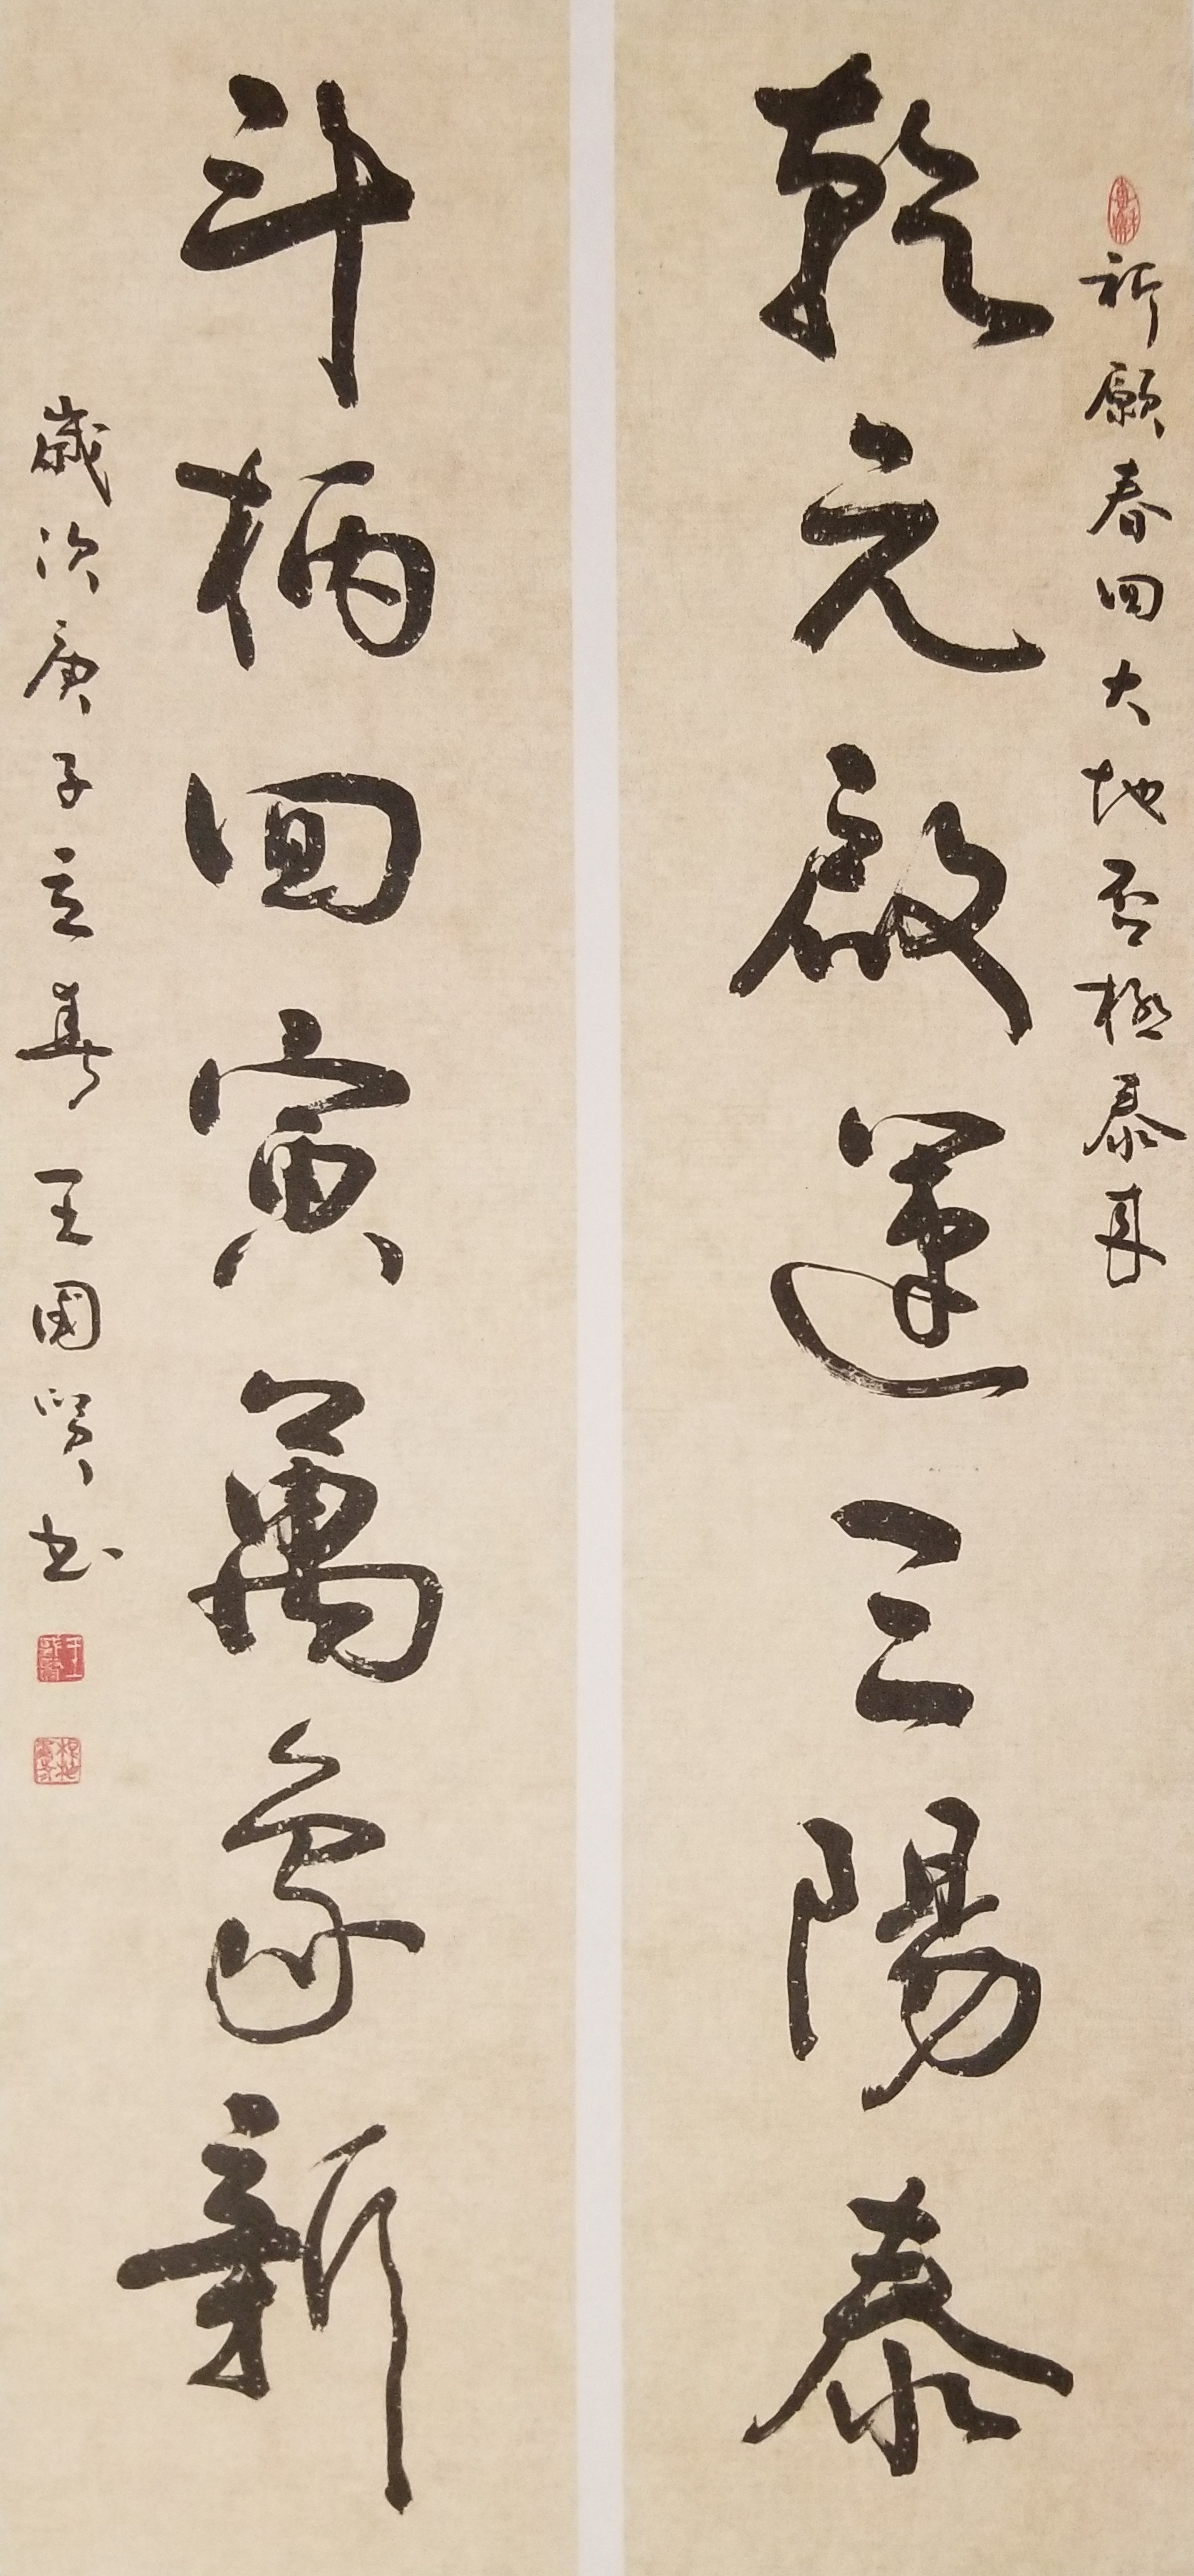 祈願春回大地否極泰来
乾元啟運三陽泰
斗柄回寅萬象新
歲次庚子立春王國賢书